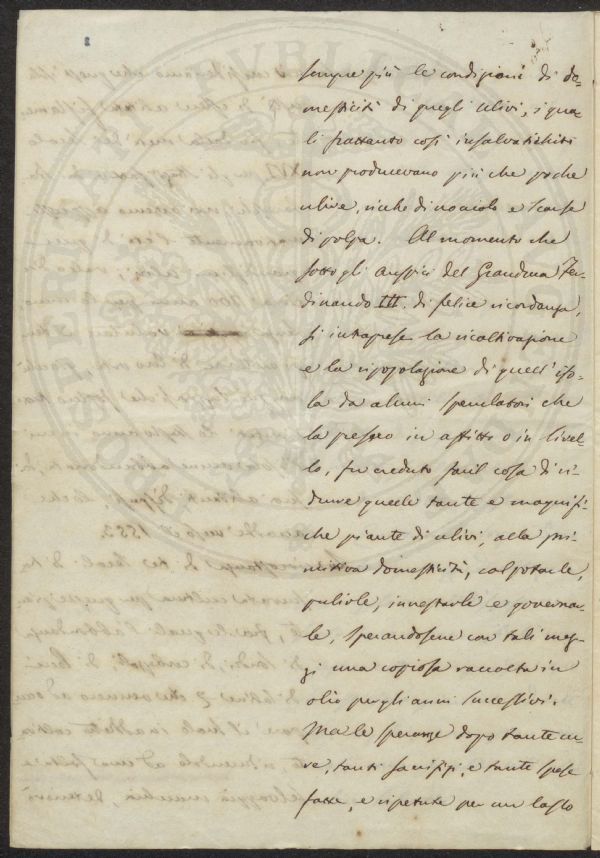 sempre più le condizioni di do-
mesticità di quegli ulivi, i qua-
li frattanto così insalvatichiti
non producevano più che poche
ulive, ricche di nocciolo e scarse
di polpa. Al momento che
sotto gli auspici del Granduca Fer-
dinando III. di felice ricordanza,
si intraprese la ricoltivazione
e la ripopolazione di quell'iso-
la da alcuni speculatori che
la presero in affitto o in livel-
lo, fu creduto facil cosa di ri-
durre quelle tante e magnifi-
che piante di ulivi, alla pri-
mitiva domesticità, col potarle,
pulirle, innestarle e governar-
le, sperandosene con tali mez-
zi una copiosa raccolta in
olio per gli anni successivi.
Ma le speranze dopo tante cu-
re, tanti sacrifizi, e tante spese
fatte, e ripetute per un lasso